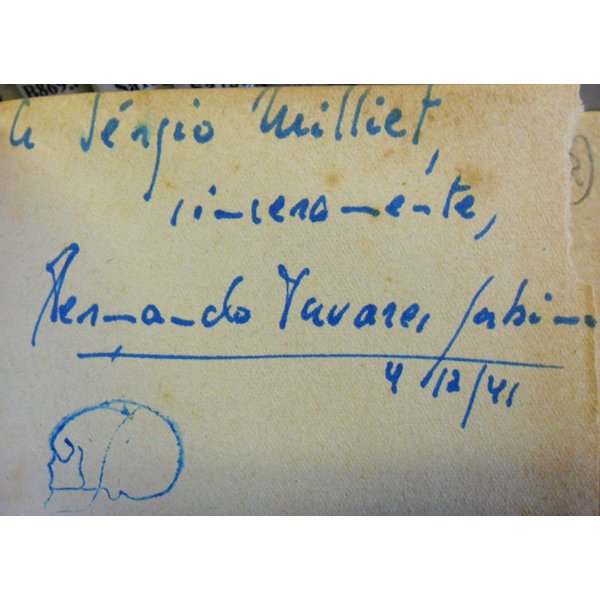 A Sérgio Milliet,
sinceramente,
Fernando Tavares Sabino
4/12/41